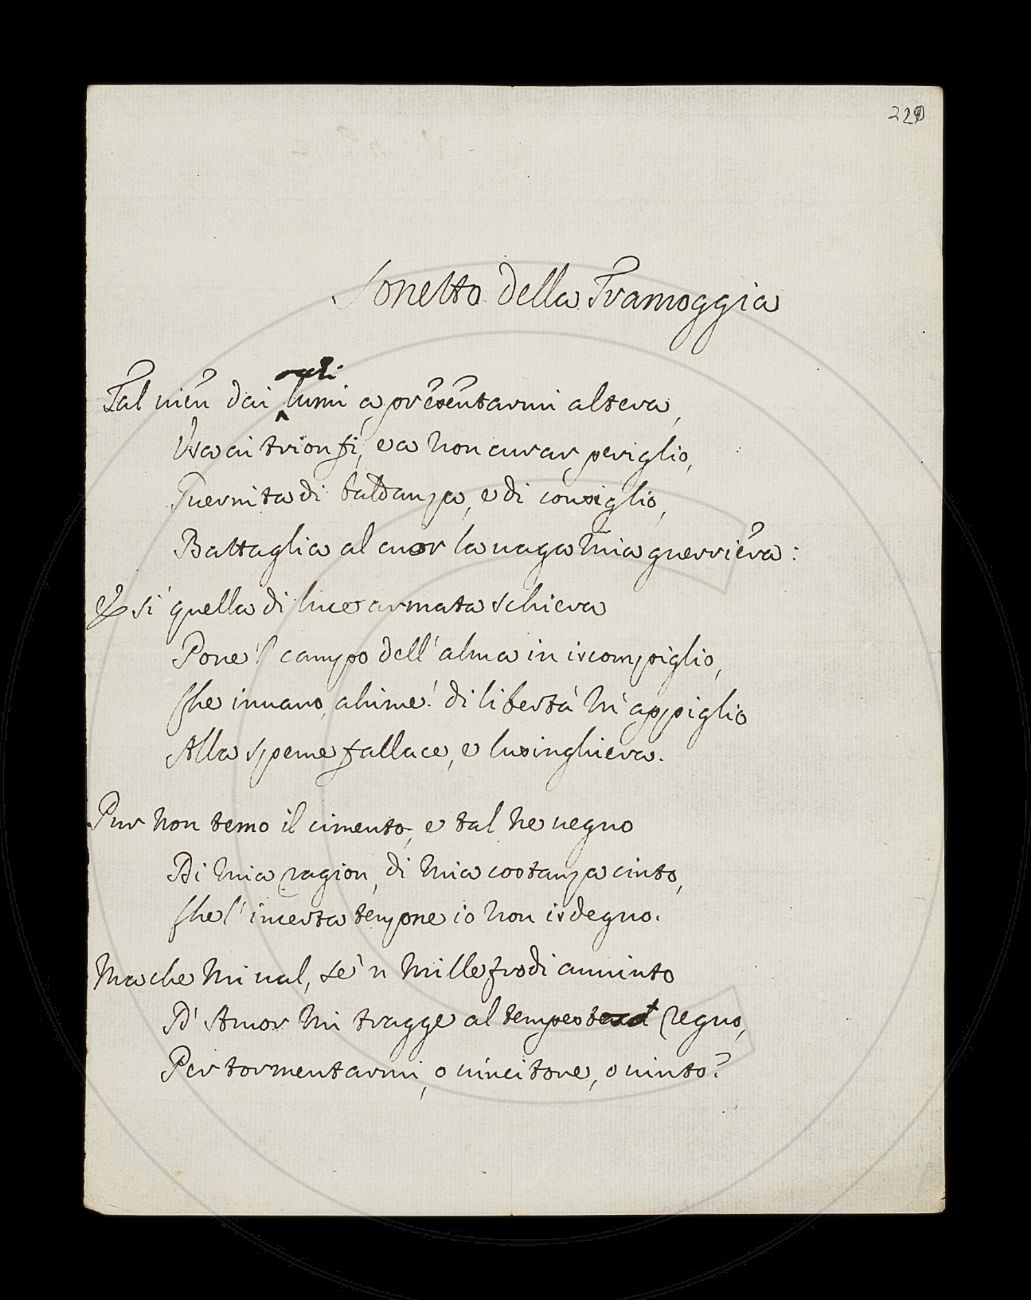 229
Sonetto della Tramoggia
Tal vien dai lumi a presentarmi altera,
Usa ai trionfi, e a non curar periglio,
Guernita di baldanza, e di consiglio,
Battaglia al cuor la vaga mia guerriera:
E sì quella di luce armata schiera
Pone'l campo dell'alma in iscompiglio,
Che invano, ahimè! di libertà m'appiglio
Alla speme fallace, e lusinghiera.
Pur non temo il cimento, e tal ne vegno
Di mia ragion, di mia costanza cinto,
Che l'incerta tenzone io non isdegno.
Ma che mi val, se'n mille frodi avvinto
D'Amor mi tragge al regno,
Per tormentarmi, o vincitore, o vinto?